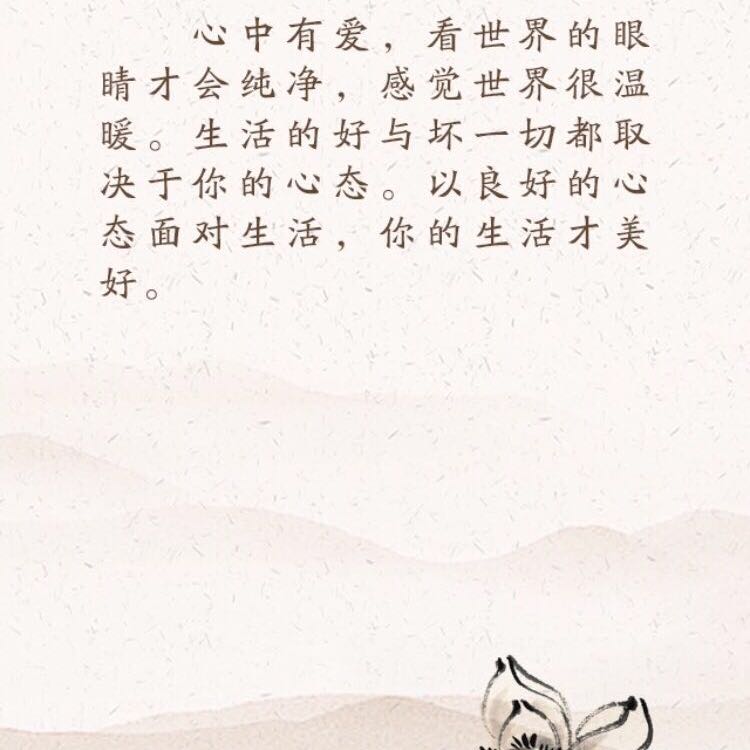 心中有爱，看世界的眼
睛才会纯净，感觉世界很温
暖。生活的好与坏一切都取
决于你的心态。以良好的心
态面对生活，你的生活才美
好。